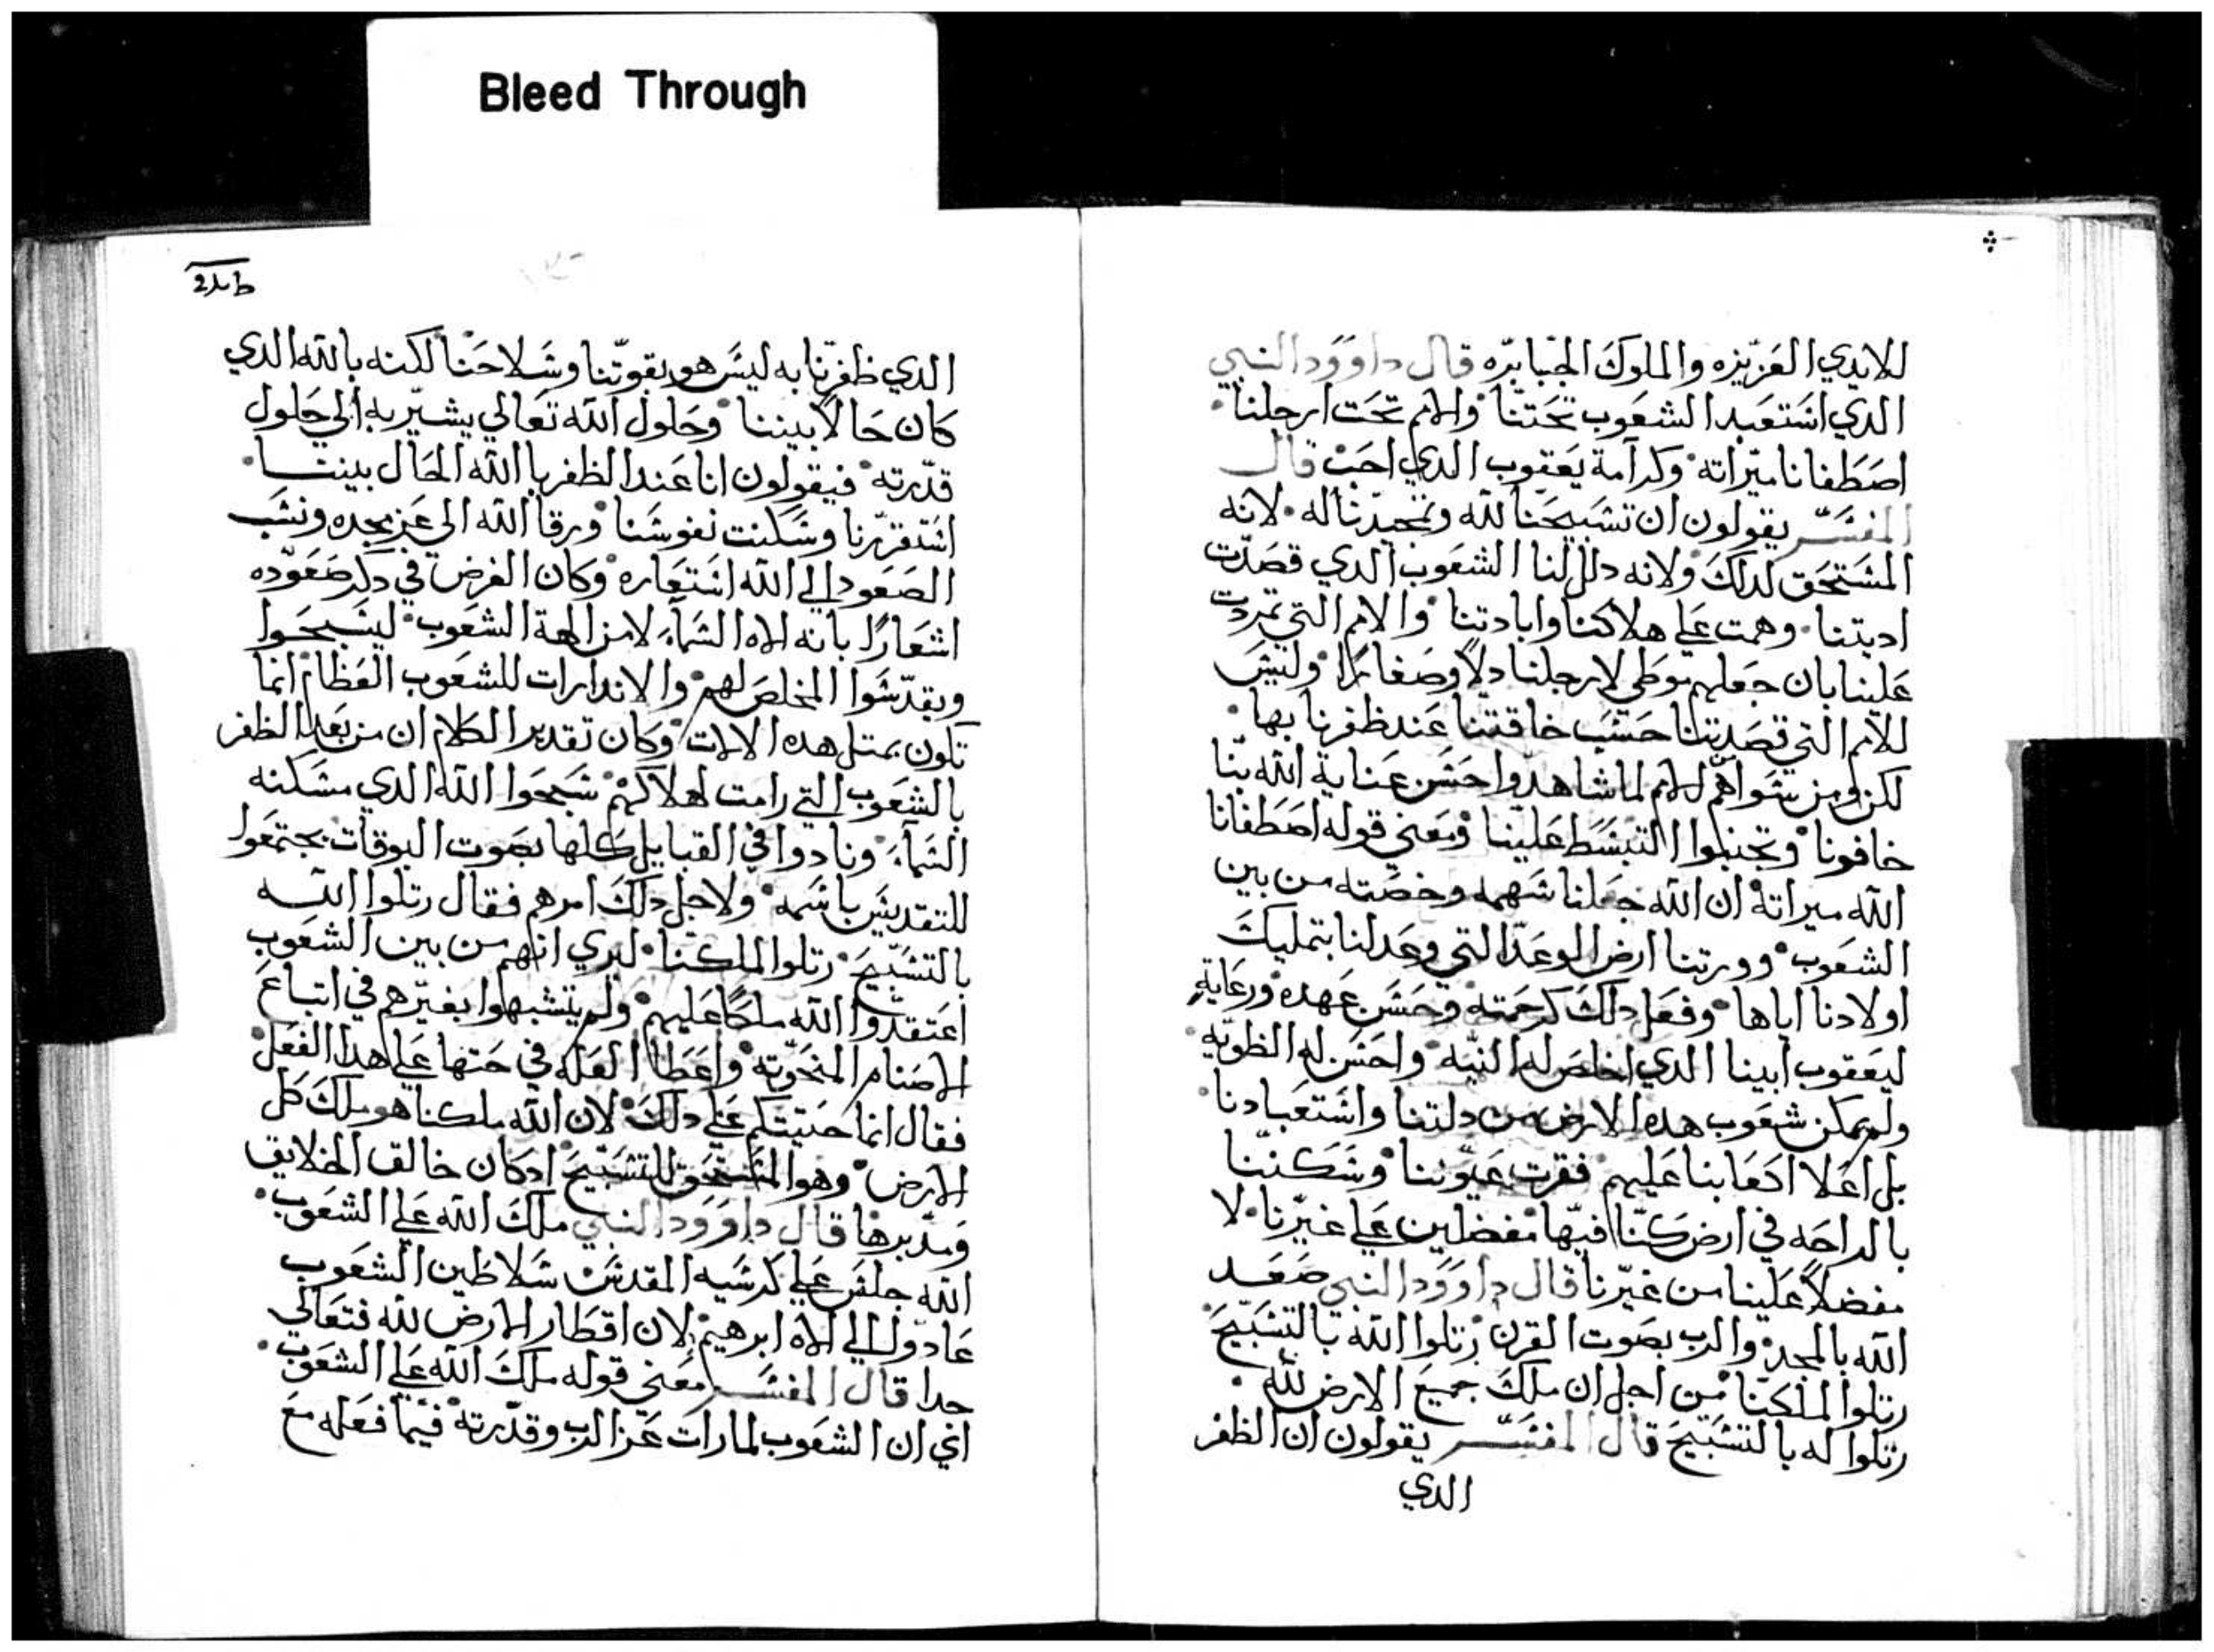 Bleed Through
للايدي العزيزه والملوك الجبابره قال داوود النبي
الدي استعبد الشعوب تحتنا والامم تحت ارجلنا
اصطفانا ميراته وكرامة يعقوب الدي احب قال
المفسر يقولون ان تسبيحنا لله وتمجيدنا له لانه
المستحق لدلك ولانه دلل لنا الشعوب الدي قصدت
اديتنا وهمت على هلاكنا وابادتنا والامم التي تمردت
علينا بان جعلهم موطي لارجلنا دلاً وصغارًا وليس
للامم التي قصدتنا حسب خافتنا عند ظفرنا بها
لكن ومن سواهم الامم لما شاهدوا حسن عناية الله بنا
خافونا وتجنبوا التبسط علينا ومعني قوله اصطفانا
الله ميراته ان الله جعلنا سهمه وخصته من بين
الشعوب وورتنا ارض الوعد التي وعد لنا بتمليك
اولادنا اياها وفعل دلك كرحمته وحسن عهده ورعايته
ليعقوب ابينا الدي اخلص له النيه واحسن له الطويه
ولم يمكن شعوب هده الارض من دلتنا واستعبادنا
بل اعلا اكعابنا عليهم فقرت عيوننا وسكننا
بالراحه في ارض كنا فيها مفضلين على غيرنا لا
مفضلاً علينا من غيرنا قال داوود النبي صعد
الله بالمجد والرب بصوت القرن رتلوا الله بالتسبيح
رتلوا لملكنا من اجل ان ملك جميع الارض لله
رتلوا له بالتسبيح قال المفسر يقولون ان الظفر
الدي
الدي ظفرنا به ليس هو بقوتنا وسلاحنا لكنه بالله الدي
كان حالاً بيننا وحلول الله تعالي يشير به الي حلول
قدرته فيقولون انا عند الظفر بالله الحال بيننا
استقررنا وسكنت نفوسنا ورقا الله الى عز مجده ونسب
الصعود الي الله استعاره وكان الغرض في دكر صعوده
اشعارًا بانه الاه السماء لا من الهة الشعوب ليسبحوا
ويقدسوا المخلص لهم والاندارات للشعوب العظام انما
تكون بمتل هده الالات وكان تقدير الكلام ان من بعد الظفر
بالشعوب التي رامت اهلاكهم سبحوا الله الدي مسكنه
السماء ونادوا في القبايل كلها بصوت البوقات يجتمعوا
للتقديس باسمه ولاجل دلك امرهم فقال رتلوا الله
بالتسبيح رتلوا لملكنا ليري انهم من بين الشعوب
اعتقدوا الله ملكًا عليهم ولم يتشبهوا بغيرهم في اتباع
الاصنام المنحوته واعطا العله في حتها على هدا الفعل
فقال انما حتيتكم على دلك لان الله ملكنا هو ملك كل
الارض وهو المستحق للتسبيح ادكان خالق الخلايق
ومدبرها قال داوود النبي ملك الله على الشعوب
الله جلس على كرسيه المقدس سلاطين الشعوب
عادوا الي الاه ابرهيم لان اقطار الارض لله فتعالي
جدا قال المفسر معني قوله ملك الله على الشعوب
اني ان الشعوب لما رات عز الرب وقدرته فيما فعله مع